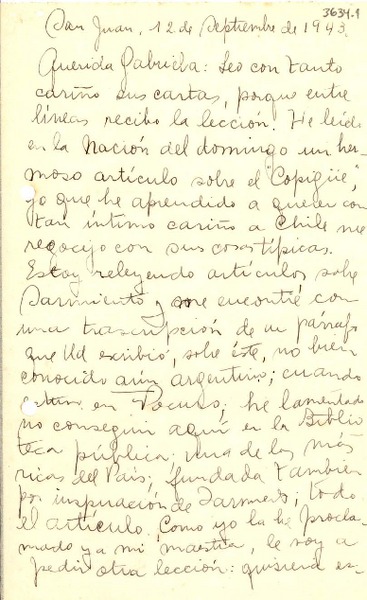 3634.1
San Juan, 12 de Septiembre de 1943
Querida Gabriela: Leo con tanto
cariño sus cartas, porque entre
líneas recibo la lección. He leído
en la Nación del domingo un her-
moso artículo sobre el "Copigüe",
yo que he aprendido a querer con
tan íntimo cariño a Chile me
regocijo con sus cosas típicas.
Estoy releyendo artículos sobre
Sarmiento y me encontré con
una trascripción de un párrafo
que Ud escribió, sobre éste, no bien
conocido aún argentino; cuando
estuvo en Pocuro; he lamentado
no conseguir aquí en la Biblio
teca pública una de las más
ricas del País; fundada también
por inspiración de Sarmiento; todo
el artículo. Como yo la he procla-
mado ya mi maestra, le voy a
pedir otra lección: quisiera es-